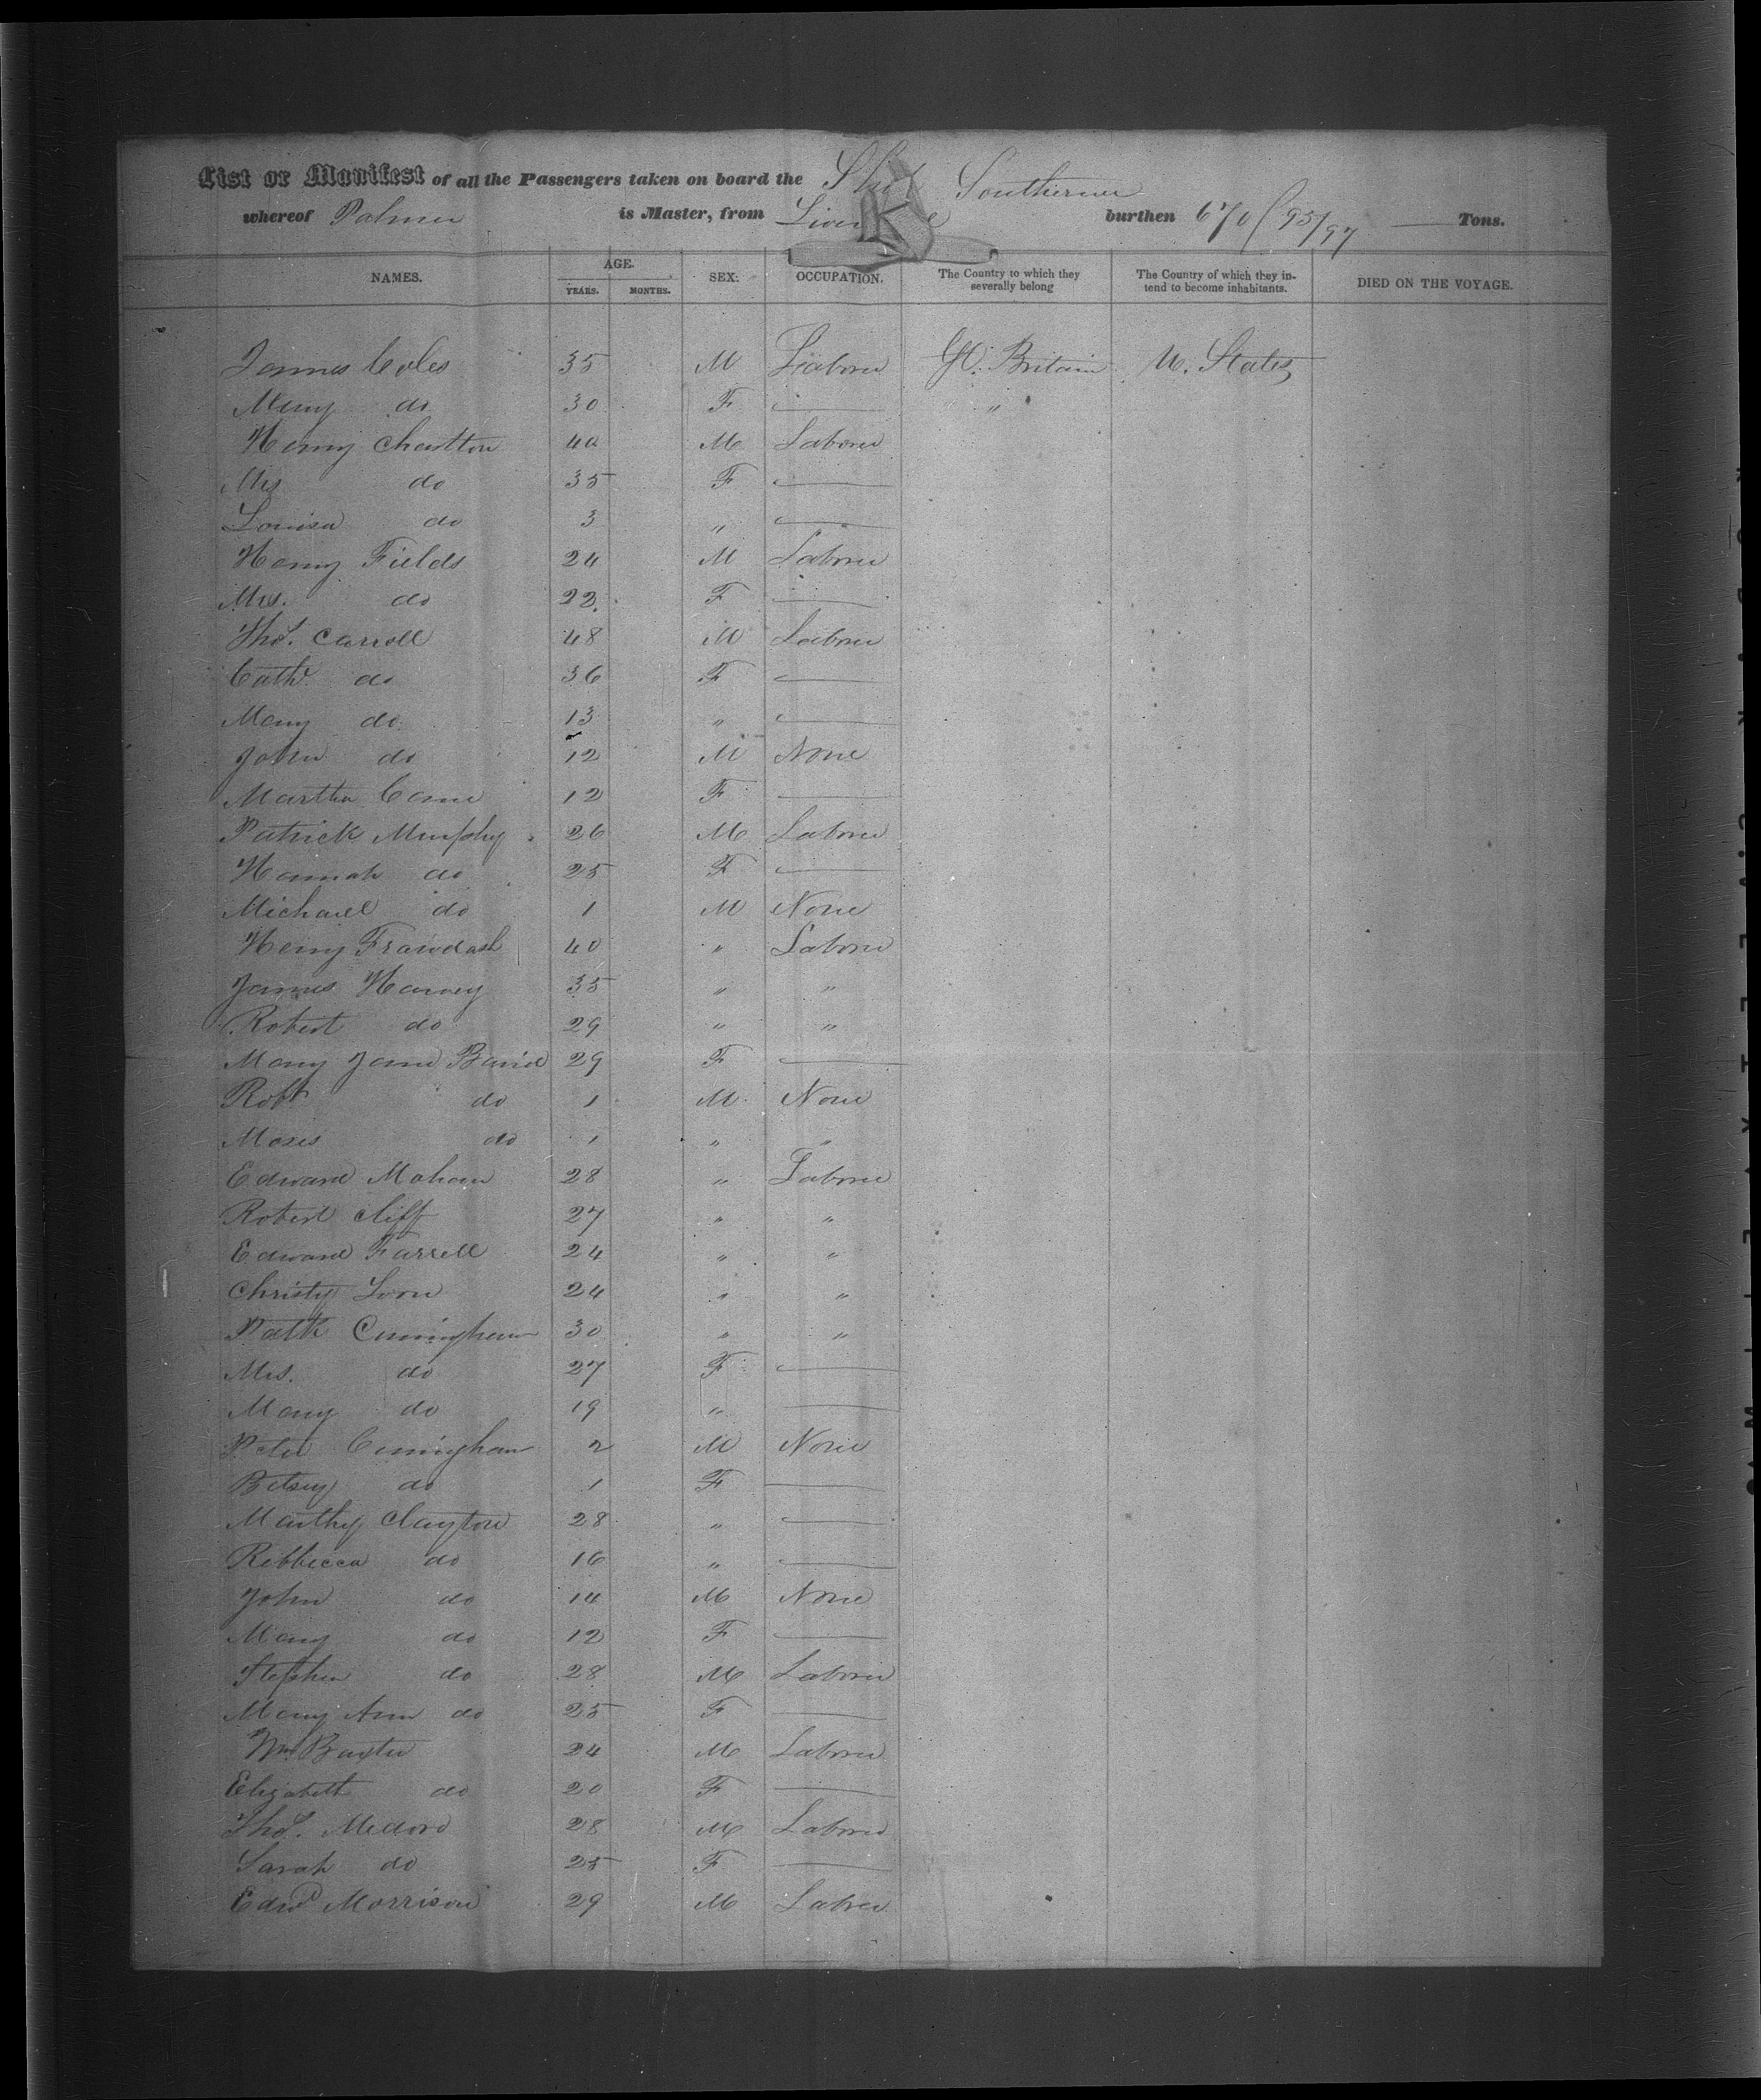 List or Manifest of all the Passengers taken on board the Ship Southerner
whereof Palmer is Master, from burthen 670 (95/97 Tons.
K
NAMES. AGE. YEARS. MONTHS. SEX. OCCUPATION. The Country to which they severally belong The Country of which they intend to become inhabitants. DIED ON THE VOYAGE.
James Coles 35 M Laborer Gt. Britain U. States
Mary do 30 F — "
Henry Charlton 40 M Laborer
Mrs do 35 F —
Louisa do 3 " —
Henry Fields 24 M Laborer
Mrs. do 22 F —
Thos. Carroll 48 M Laborer
Cath. do 36 F —
Mary do 13 " —
John do 12 M None
Martha 12 F —
Patrick Murphy 26 M Laborer
Hannah do 25 F —
Michael do 1 M None
Henry 40 " Laborer
James Harvey 35 " "
Robert do 29 " "
Mary Jane Baird 29 F —
Robt do 1 M None
Moses do 1 " "
Edward Mahan 28 " Laborer
Robert Cliff 27 " "
Edward Farrell 24 " "
Christy 24 " "
Patk Cuningham 30 " "
Mrs. do 27 F —
Mary do 19 " —
Peter Cuningham 2 M None
Betsey do 1 F —
Marthy Clayton 28 " —
Rebbecca do 16 " —
John do 14 M None
Mary do 12 F —
Stephen do 28 M Laborer
Mary Ann do 25 F —
Wm Baxter 24 M Laborer
Elizabeth do 20 F —
Thos. 28 M Laborer
Sarah do 25 F —
Edwd Morrison 29 M Laborer